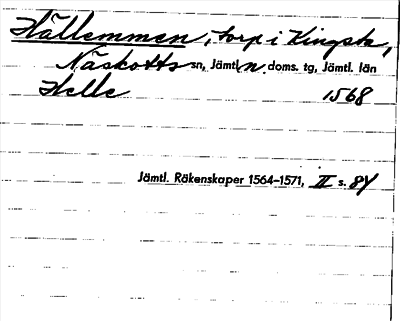 Hällemmen, torp i Kingsta,
Näskotts sn, Jämtl n. doms. tg, Jämtl. län
Helle 1568
Jämtl. Räkenskaper 1564-1571, II s. 84